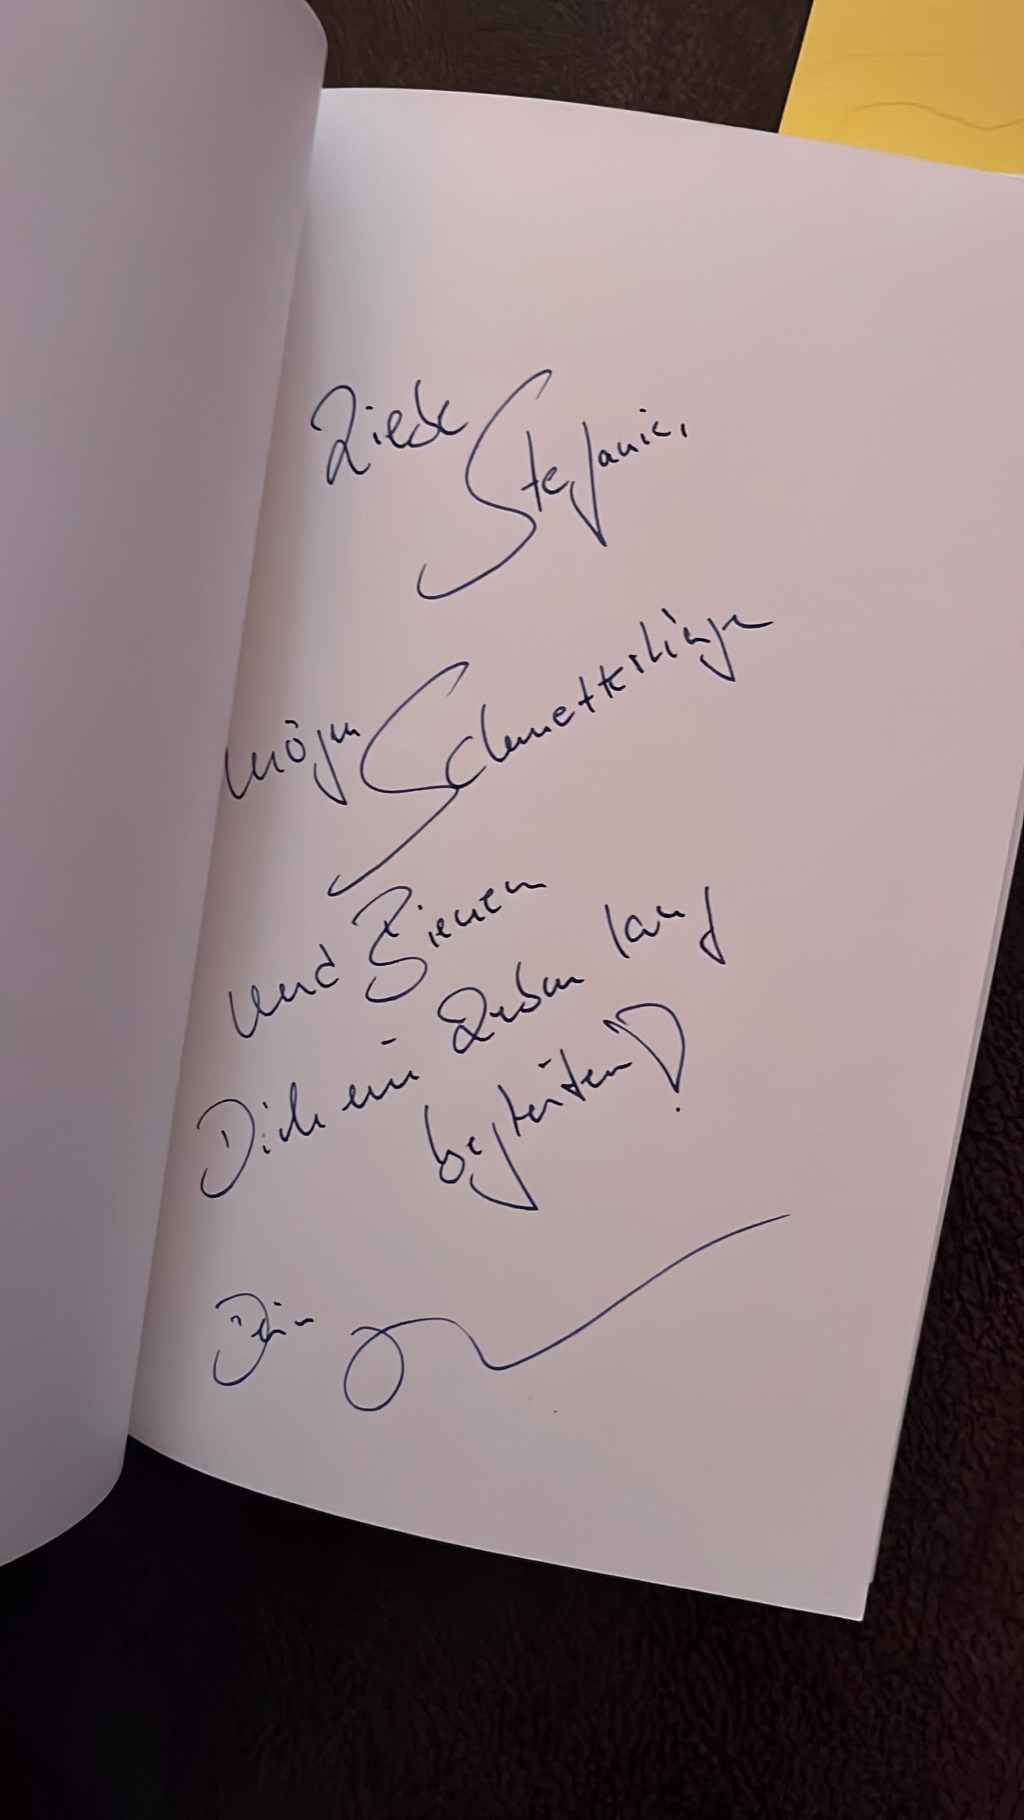 Liebe Stefanie,
mögen Schmetterlinge
und Bienen
Dich ein Leben lang
begleiten!
Dein